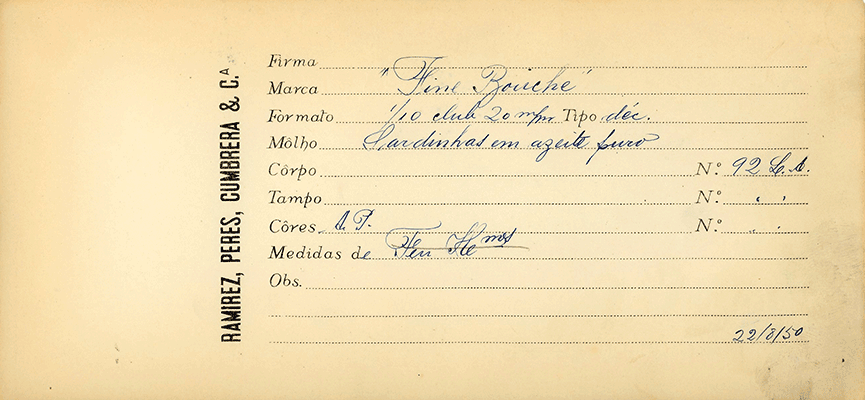 RAMIREZ, PERES, CUMBRERA & C.ᴬ
Firma
Marca "Fine Bouche"
Formato 1/10 club 20 m/m Tipo déc.
Môlho Sardinhas em azeite puro
Côrpo N.º 92 L.A.
Tampo N.º " "
Côres A.P. N.º " "
Medidas de
Obs.
22/8/50